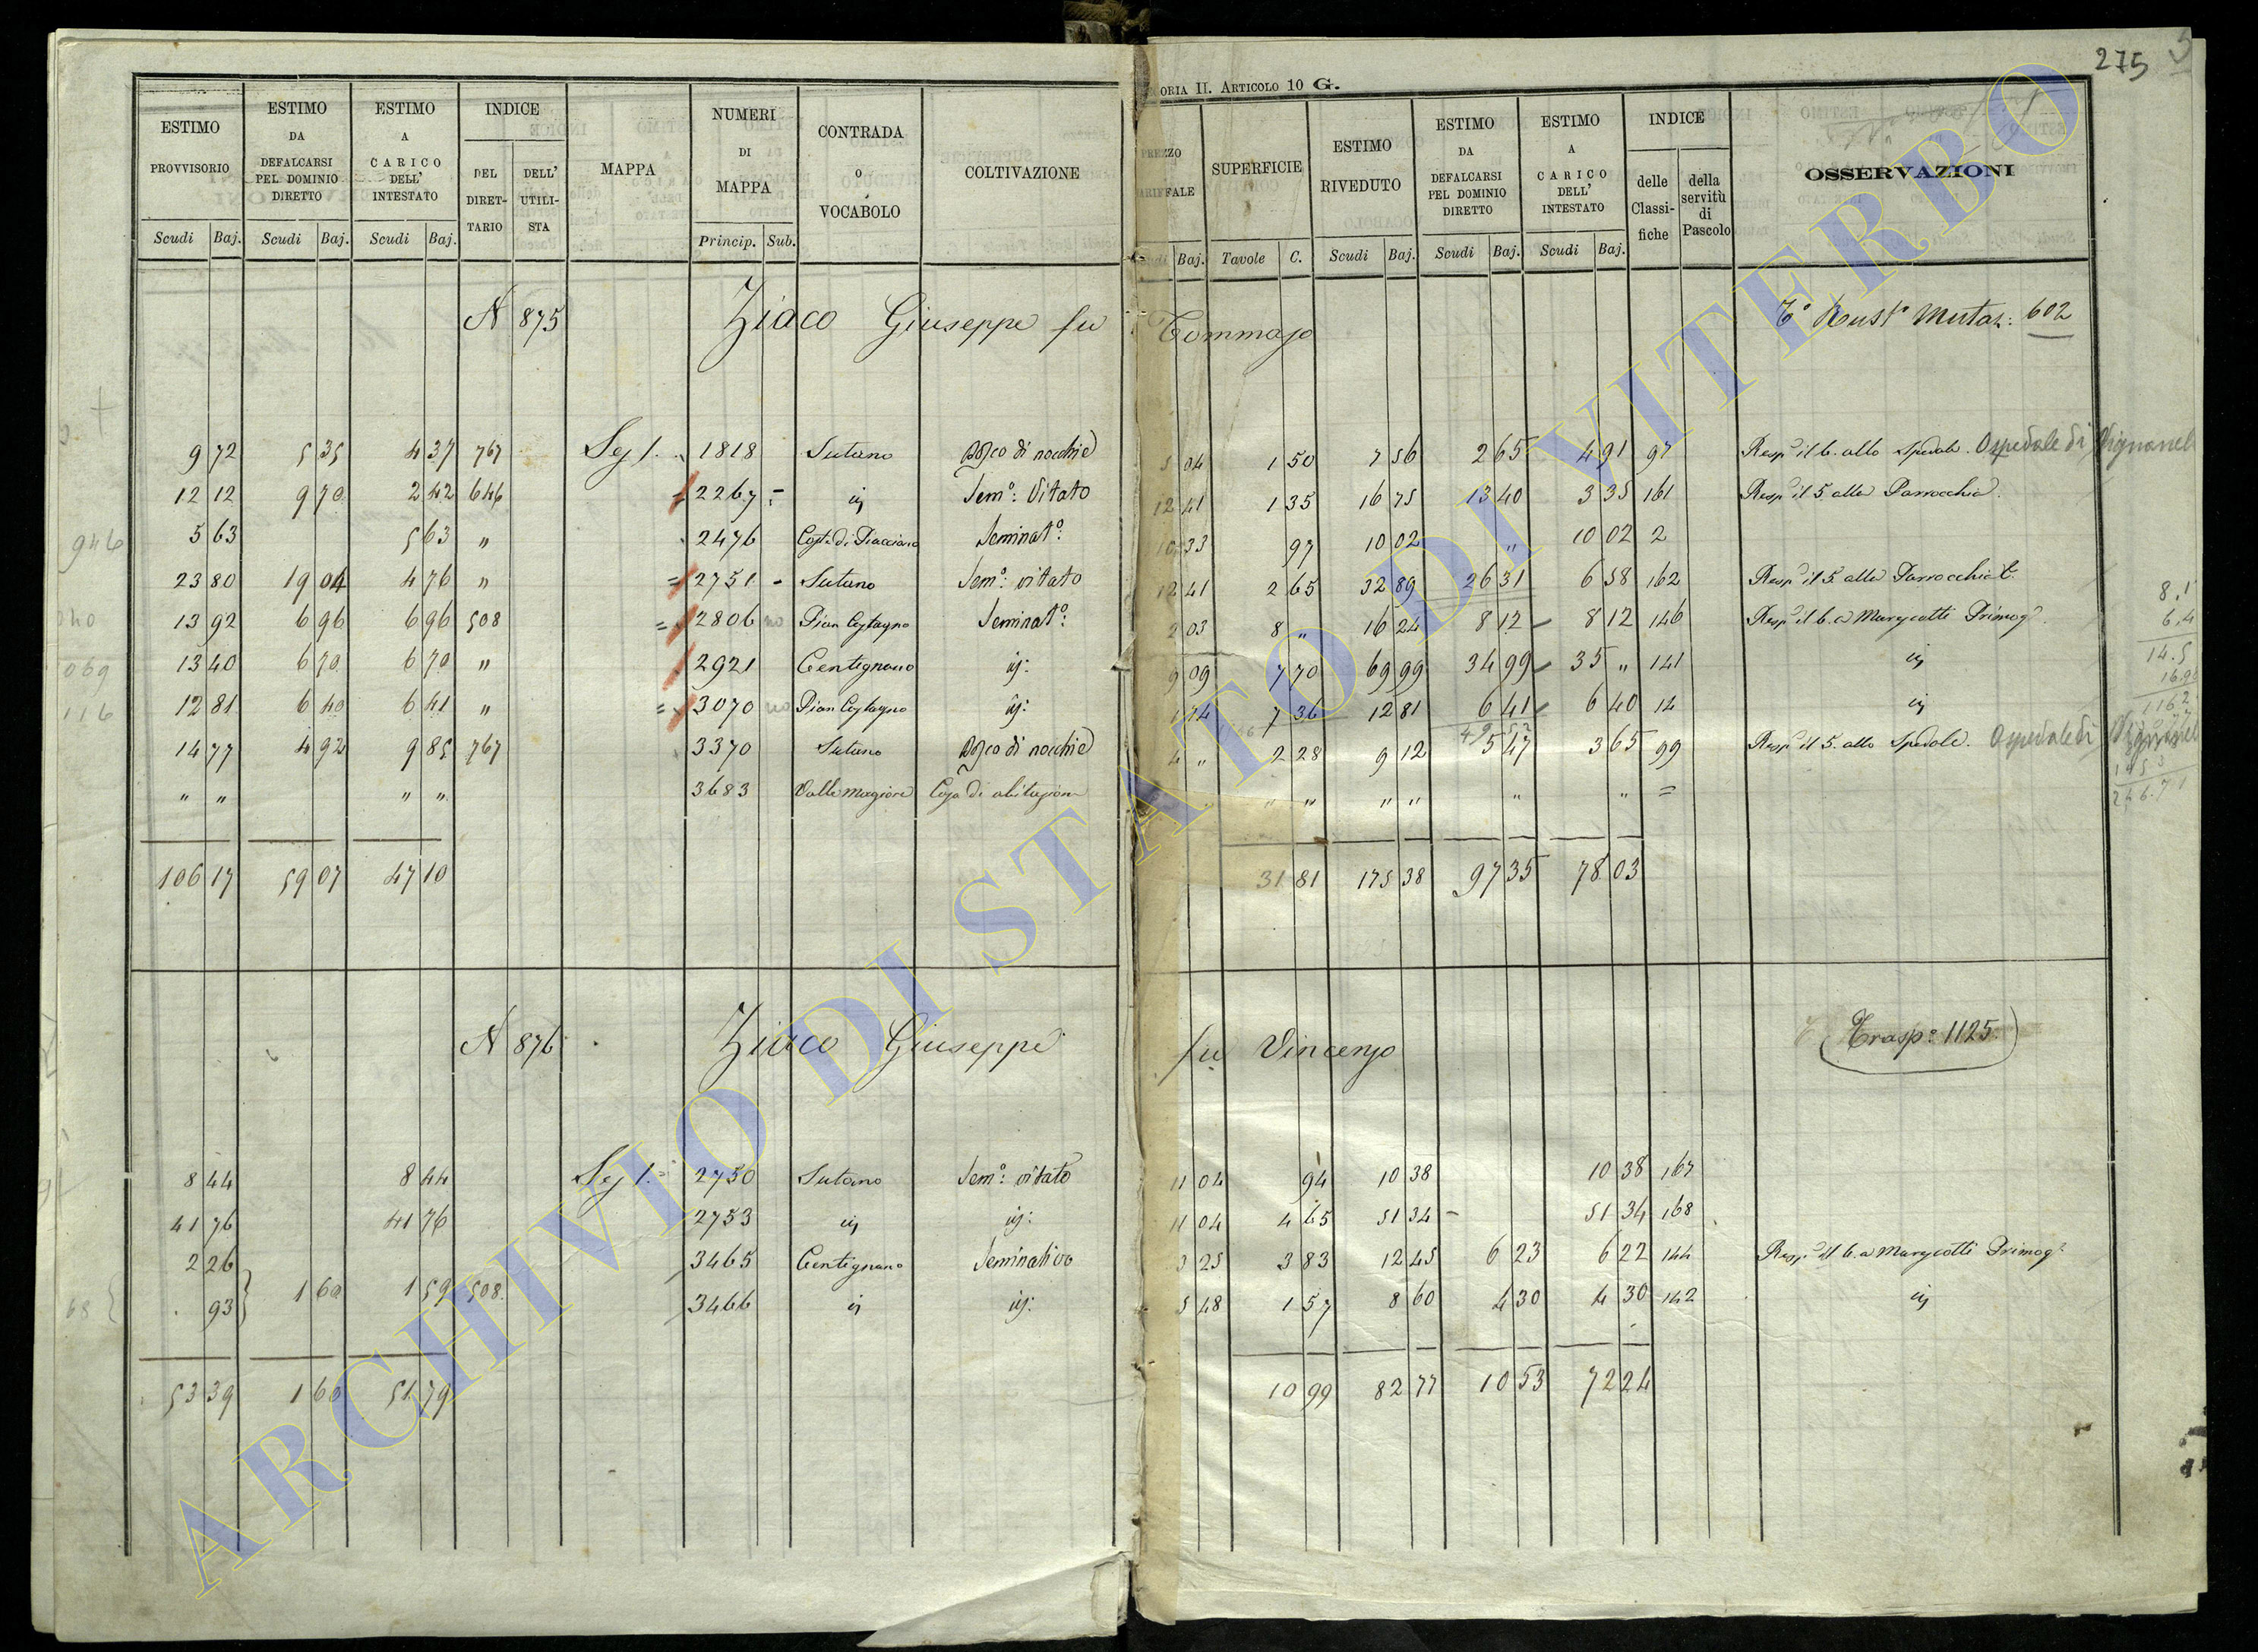 275
ORIA II. ARTICOLO 10 G.
ESTIMO PROVVISORIO Scudi Baj. ESTIMO DA DEFALCARSI PEL DOMINIO DIRETTO Scudi Baj. ESTIMO A CARICO DELL' INTESTATO Scudi Baj. INDICE DEL DIRETTARIO DELL' UTILISTA MAPPA NUMERI DI MAPPA Princip. Sub. CONTRADA O VOCABOLO COLTIVAZIONE
PREZZO Baj. SUPERFICIE Tavole C. ESTIMO RIVEDUTO Scudi Baj. ESTIMO DA DEFALCARSI PEL DOMINIO DIRETTO Scudi Baj. ESTIMO A CARICO DELL' INTESTATO Scudi Baj. INDICE delle Classifiche della servitù di Pascolo OSSERVAZIONI
N 875 Ziaco Giuseppe fu Tommaso Mutaz: 602
9 72 5 35 4 37 767 1818 Sutano Bosco di nocchie 5 04 1 50 7 56 2 65 4 91 97 Resp. il 6. allo Spedale. Ospedale di
12 12 9 70 2 42 646 2267 Sem°: Vitato 12 41 1 35 16 75 13 40 3 35 161 Resp. il 5 alla Parrocchia.
5 63 5 63 " 2476 Seminat°: 10 33 97 10 02 " 10 02 2
23 80 19 04 4 76 " 2751 Sutano Sem°: vitato 12 41 2 65 32 89 26 31 6 58 162 Resp. il 5. alla Parrocchia
13 92 6 96 6 96 508 2806 no Pian Seminat°: 2 03 8 " 16 24 8 12 8 12 146 Resp. il 6. a Primog.
13 40 6 70 6 70 " 2921 Centignano 9 09 7 70 69 99 34 99 35 " 141
12 81 6 40 6 41 " 3070 no Pian 7 36 12 81 6 41 6 40 14
14 77 4 92 9 85 767 3370 Sutano Bosco di nocchie 4 " 2 28 9 12 5 47 3 65 99 Resp. il 5. allo Spedale. Ospedale di
" " " " 3683 Valle Magiore Casa di abitazione " " " " " " =
106 17 59 07 47 10 31 81 175 38 97 35 78 03
N 876 Ziaco Giuseppe fu Vincenzo Trasp° 1125
8 44 8 44 2750 Sutano Sem°: vitato 11 04 94 10 38 10 38 167
41 76 41 76 2753 11 04 4 65 51 34 51 34 168
2 26 3465 Centignano Seminativo 3 25 3 83 12 45 6 23 6 22 144 Resp. il 6. a Primog.
93 1 60 1 59 508 3466 5 48 1 57 8 60 4 30 4 30 142
53 39 1 60 51 79 10 99 82 77 10 53 72 24
ARCHIVIO DI STATO DI VITERBO